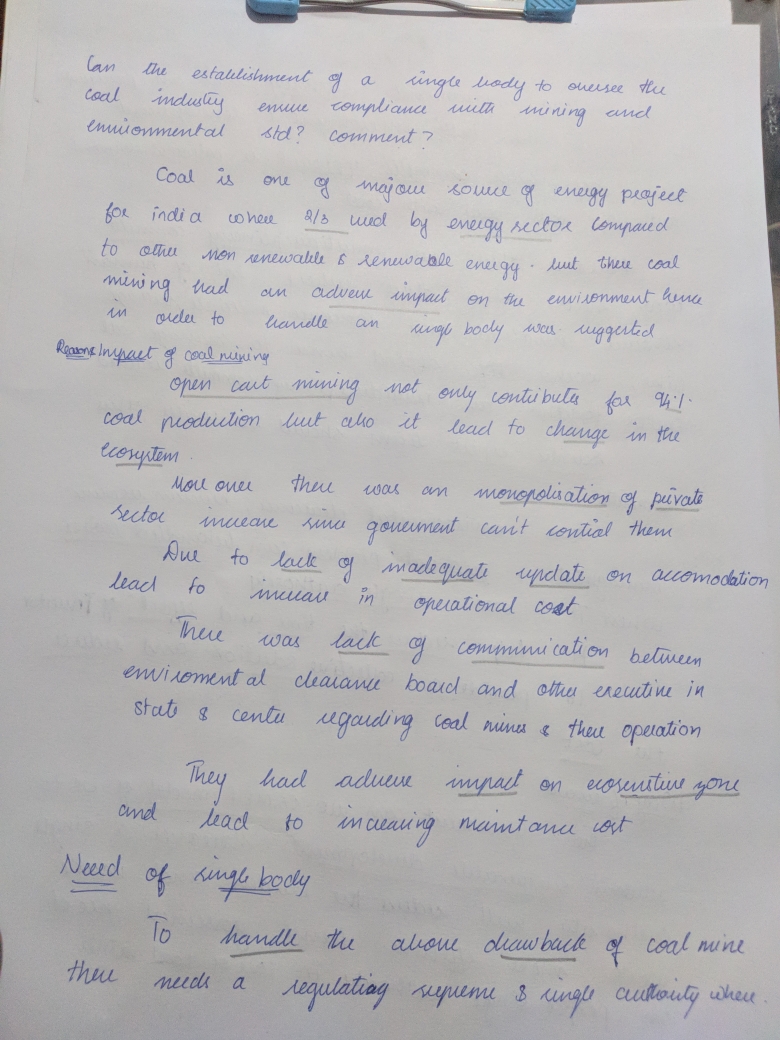 Can the establishment of a single body to oversee the
coal industry ensure compliance with mining and
environmental std? comment?
Coal is one of majour source of energy project
for india where 2/3 used by energy sector compared
to other non renewable & renewable energy. but there coal
mining had an adverse impact on the environment hence
in order to handle an single body was suggested
Reasons Impact of coal mining
open cast mining not only contributes for 94%
coal production but also it lead to change in the
ecosystem.
More over there was an monopolisation of private
sector increase since government can't control them
Due to lack of inadequate update on accomodation
lead to increase in operational cost
There was lack of communication between
enviromental clearance board and other executive in
state & center regarding coal mines & there operation
They had adverse impact on ecosensitive zone
and lead to increasing maintance cost
Need of single body
To handle the above drawback of coal mine
there needs a regulating supreme & single authority where